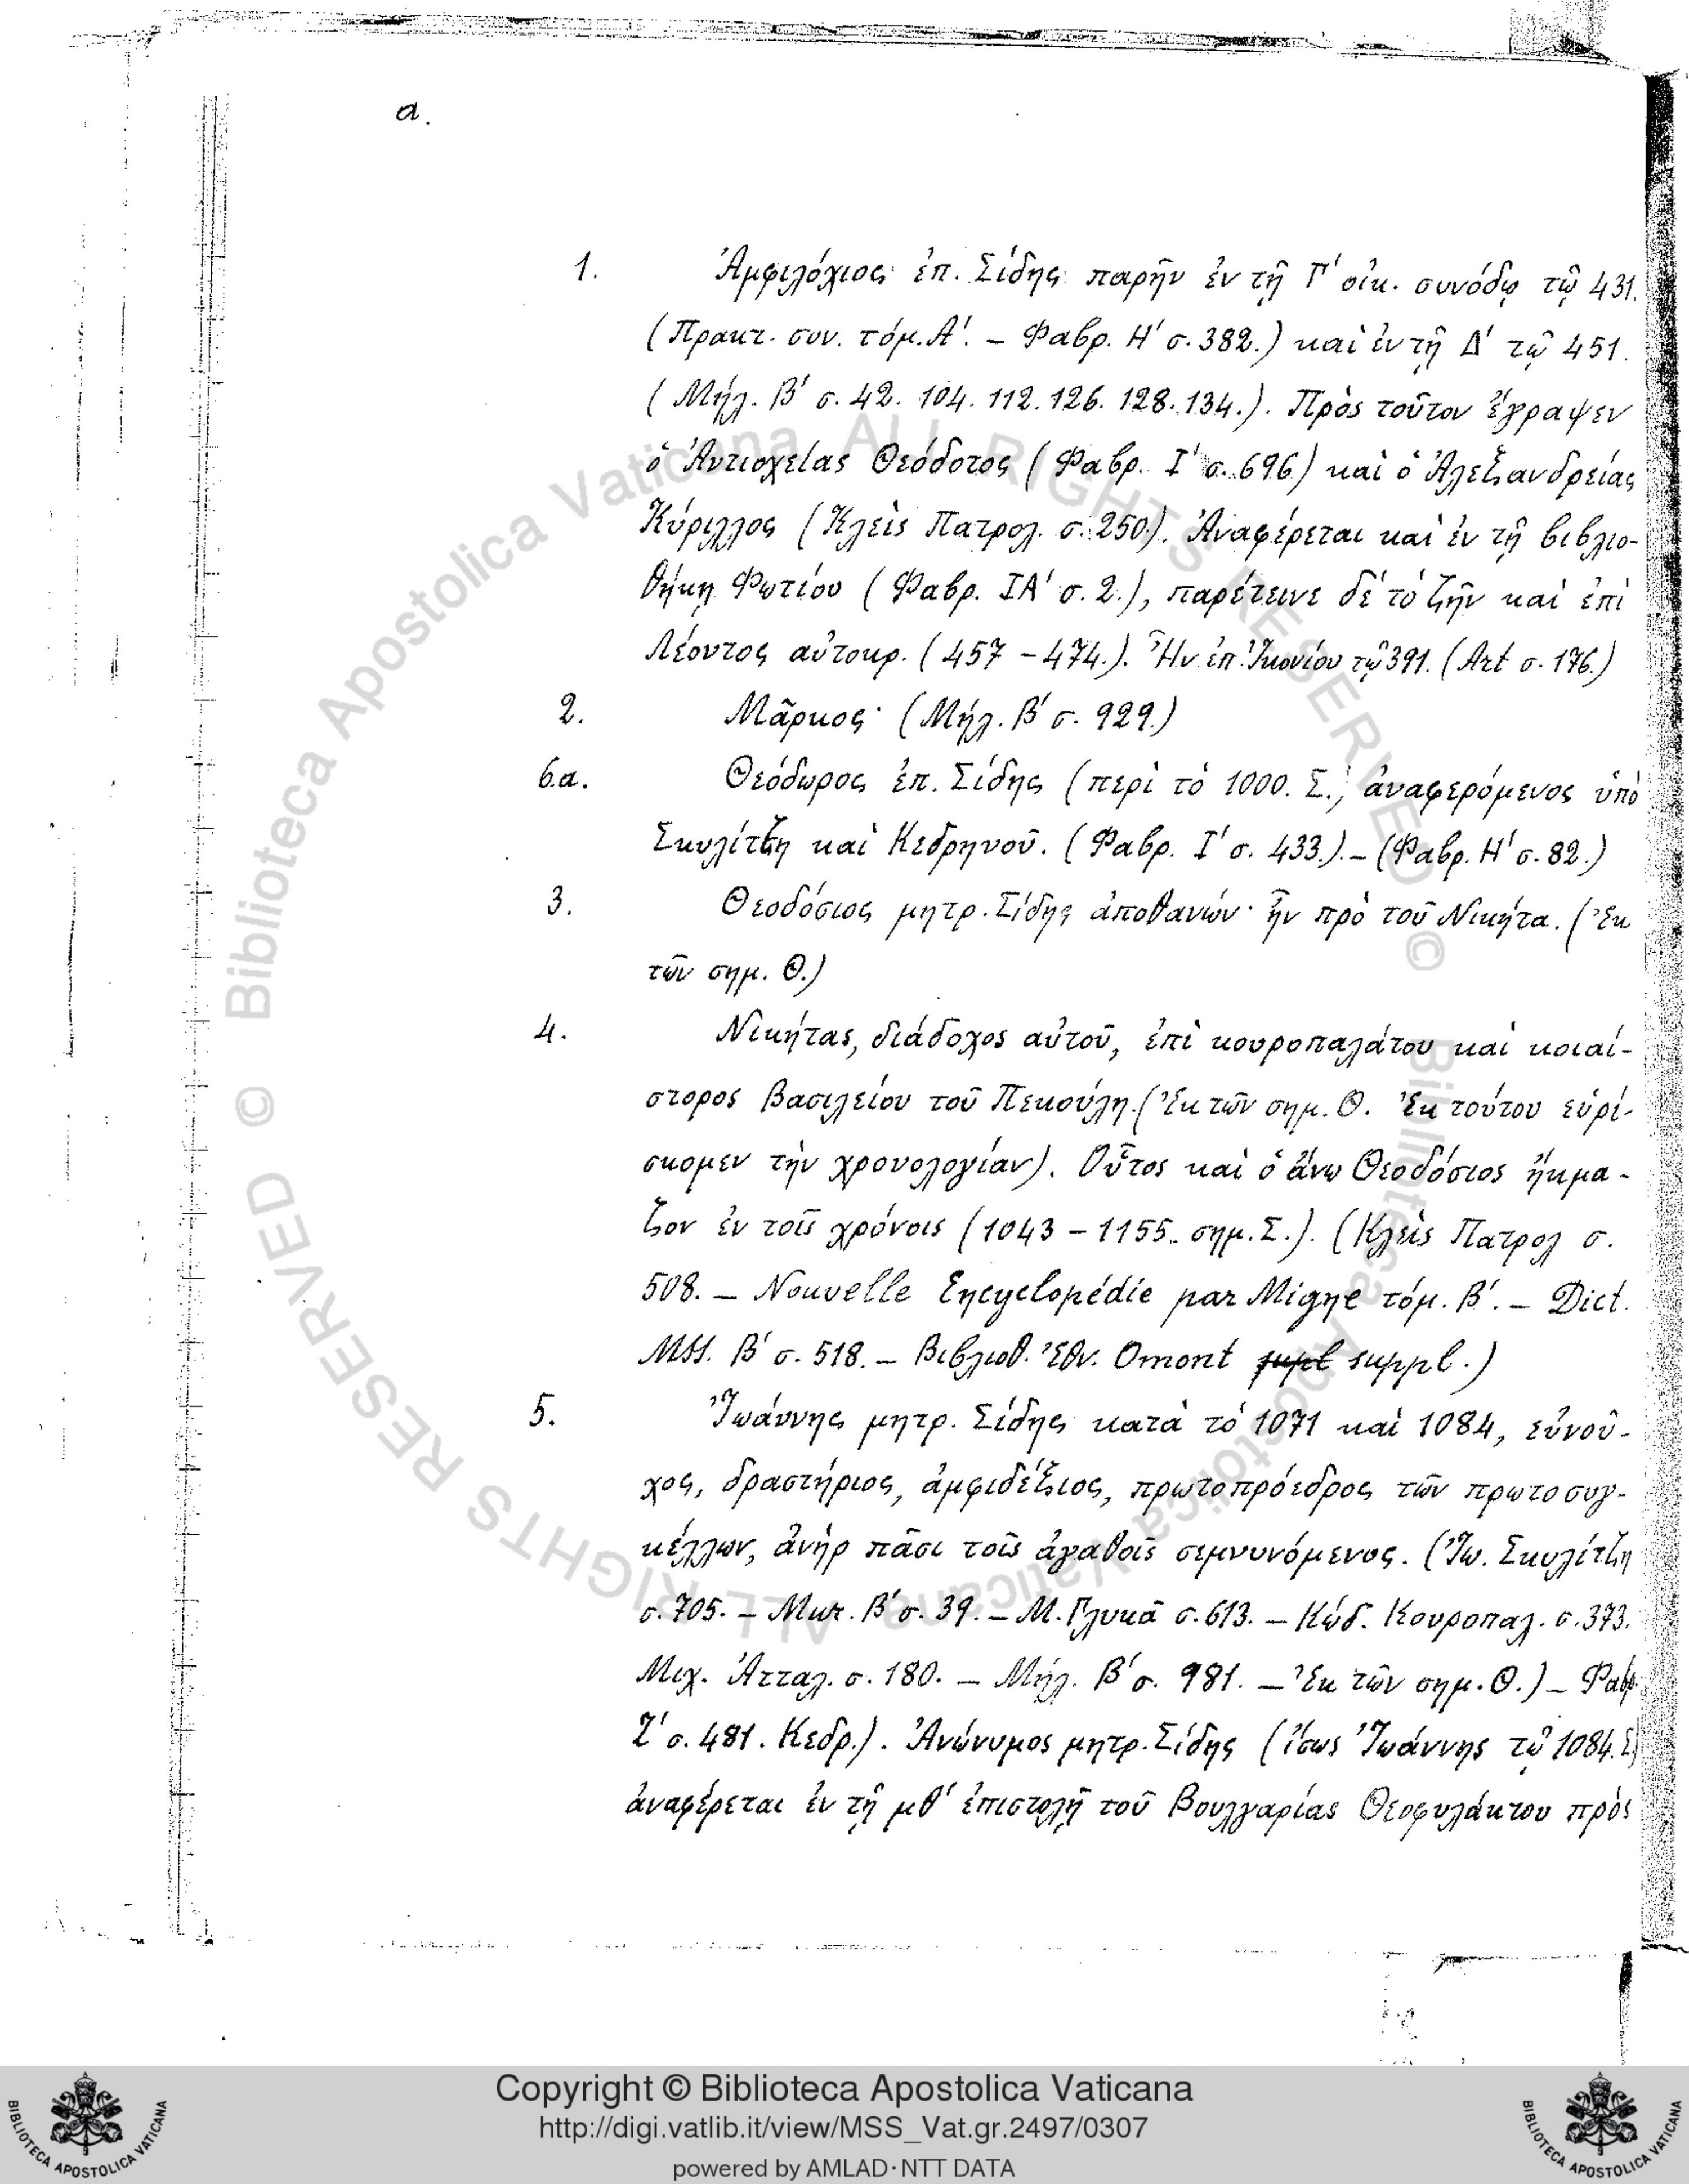 a.
1. Ἀμφιλόχιος ἐπ. Σίδης παρῆν ἐν τῇ Γ' οἰκ. συνόδῳ τῷ 431.
(Πρακτ. συν. τόμ. Α'. – Φαβρ. Η' σ. 382.) καὶ ἐν τῇ Δ' τῷ 451.
(Μήλ. Β' σ. 42. 104. 112. 126. 128. 134.). Πρὸς τοῦτον ἔγραψεν
ὁ Ἀντιοχείας Θεόδοτος (Φαβρ. Ι' σ. 696) καὶ ὁ Ἀλεξανδρείας
Κύριλλος (Κλεὶς Πατρολ. σ. 250.). Ἀναφέρεται καὶ ἐν τῇ βιβλιο-
θήκῃ Φωτίου (Φαβρ. ΙΑ' σ. 2.), παρέτεινε δὲ τὸ ζῆν καὶ ἐπὶ
Λέοντος αὐτοκρ. (457 – 474.). Ἦν ἐπ. Ἰκονίου τῷ 391. (Art σ. 176.)
2. Μᾶρκος· (Μήλ. Β' σ. 929.)
6.a. Θεόδωρος ἐπ. Σίδης (περὶ τὸ 1000. Σ.) ἀναφερόμενος ὑπὸ
Σκυλίτζη καὶ Κεδρηνοῦ. (Φαβρ. Ι' σ. 433.). – (Φαβρ. Η' σ. 82.)
3. Θεοδόσιος μητρ. Σίδης ἀποθανών· ἦν πρὸ τοῦ Νικήτα. (Ἐκ
τῶν σημ. Θ.)
4. Νικήτας, διάδοχος αὐτοῦ, ἐπὶ κουροπαλάτου καὶ κοιαί-
στορος Βασιλείου τοῦ Πεκούλη. (Ἐκ τῶν σημ. Θ. Ἐκ τούτου εὑρί-
σκομεν τὴν χρονολογίαν). Οὗτος καὶ ὁ ἄνω Θεοδόσιος ἤκμα-
ζον ἐν τοῖς χρόνοις (1043 – 1155. σημ. Σ.). (Κλεὶς Πατρολ σ.
508. – Nouvelle Encyclopédie par Migne τόμ. Β'. – Dict.
MSS. Β' σ. 518. – Βιβλιοθ. Ἐθν. Omont suppl.)
5. Ἰωάννης μητρ. Σίδης κατὰ τὸ 1071 καὶ 1084, εὐνοῦ-
χος, δραστήριος, ἀμφιδέξιος, πρωτοπρόεδρος τῶν πρωτοσυγ-
κέλλων, ἀνὴρ πᾶσι τοῖς ἀγαθοῖς σεμνυνόμενος. (Ἰω. Σκυλίτζη
σ. 705. – Μικ. Β' σ. 39. – Μ. Γλυκᾶ σ. 613. – Κώδ. Κουροπαλ. σ. 373.
Μιχ. Ἀτταλ. σ. 180. – Μήλ. Β' σ. 981. – Ἐκ τῶν σημ. Θ.) – Φαβρ.
Ζ' σ. 481. Κεδρ.). Ἀνώνυμος μητρ. Σίδης (ἴσως Ἰωάννης τῷ 1084. Σ)
ἀναφέρεται ἐν τῇ μθ' ἐπιστολῇ τοῦ Βουλγαρίας Θεοφυλάκτου πρὸς
© Biblioteca Apostolica Vaticana ALL RIGHTS RESERVED
© Biblioteca Apostolica Vaticana ALL RIGHTS RESERVED
Copyright © Biblioteca Apostolica Vaticana
http://digi.vatlib.it/view/MSS_Vat.gr.2497/0307
powered by AMLAD·NTT DATA
BIBLIOTECA APOSTOLICA VATICANA
BIBLIOTECA APOSTOLICA VATICANA